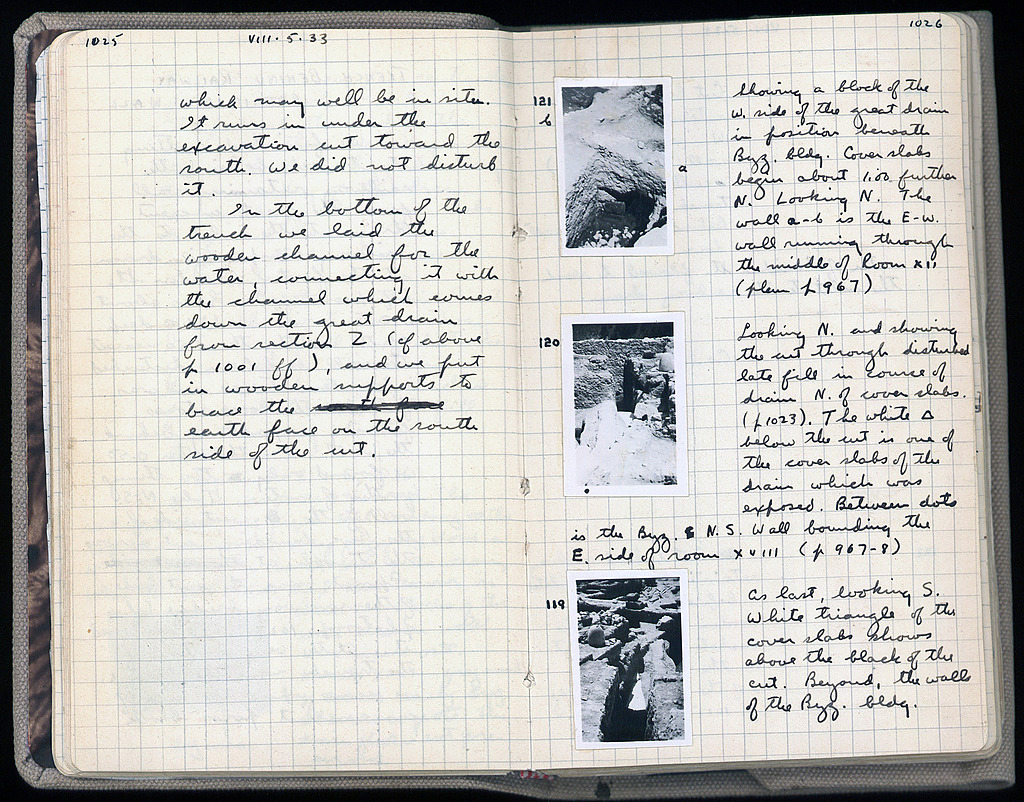 1025
VIII. 5. 33
which may well be in situ.
It runs in under the
excavation cut toward the
south. We did not disturb
it.
In the bottom of the
trench we laid the
wooden channel for the
water, connecting it with
the channel which comes
down the great drain
from section Z (cf above
p 1001 ff), and we put
in wooden supports to
brace the south face
earth face on the south
side of the cut.
1026
121
b
a
Showing a block of the
W. side of the great drain
in position beneath
Byz. bldg. Cover slabs
begin about 1.00 further
N. Looking N. The
wall a-b is the E-W.
wall running through
the middle of Room XII
(plan p 967)
120
Looking N. and showing
the cut through disturbed
late fill in course of
drain N. of cover slabs.
(p 1023). The white Δ
below the cut is one of
the cover slabs of the
drain which was
exposed. Between dots
is the Byz. N.S. Wall bounding the
E. side of room XVIII (p 967-8)
119
As last, looking S.
White triangle of the
cover slabs shows
above the black of the
cut. Beyond, the walls
of the Byz. bldg.